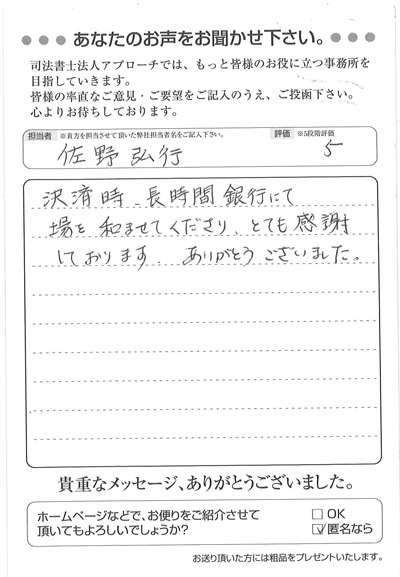 あなたのお声をお聞かせ下さい。
司法書士法人アプローチでは、もっと皆様のお役に立つ事務所を
目指していきます。
皆様の率直なご意見・ご要望をご記入のうえ、ご投函下さい。
心よりお待ちしております。
担当者 ※貴方を担当させて頂いた弊社担当者名をご記入下さい。 評価 ※5段階評価
佐野弘行 5
決済時、長時間銀行にて
場を和ませてくださり、とても感謝
しております。ありがとうございました。
貴重なメッセージ、ありがとうございました。
ホームページなどで、お便りをご紹介させて
頂いてもよろしいでしょうか?
□ OK
☑ 匿名なら
お送り頂いた方には粗品をプレゼントいたします。